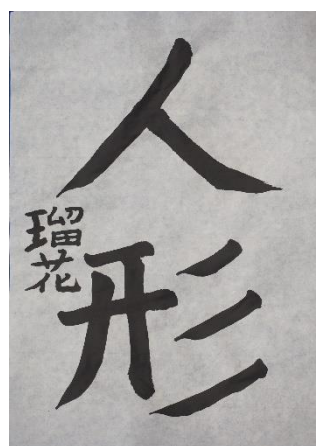 人形
瑠花